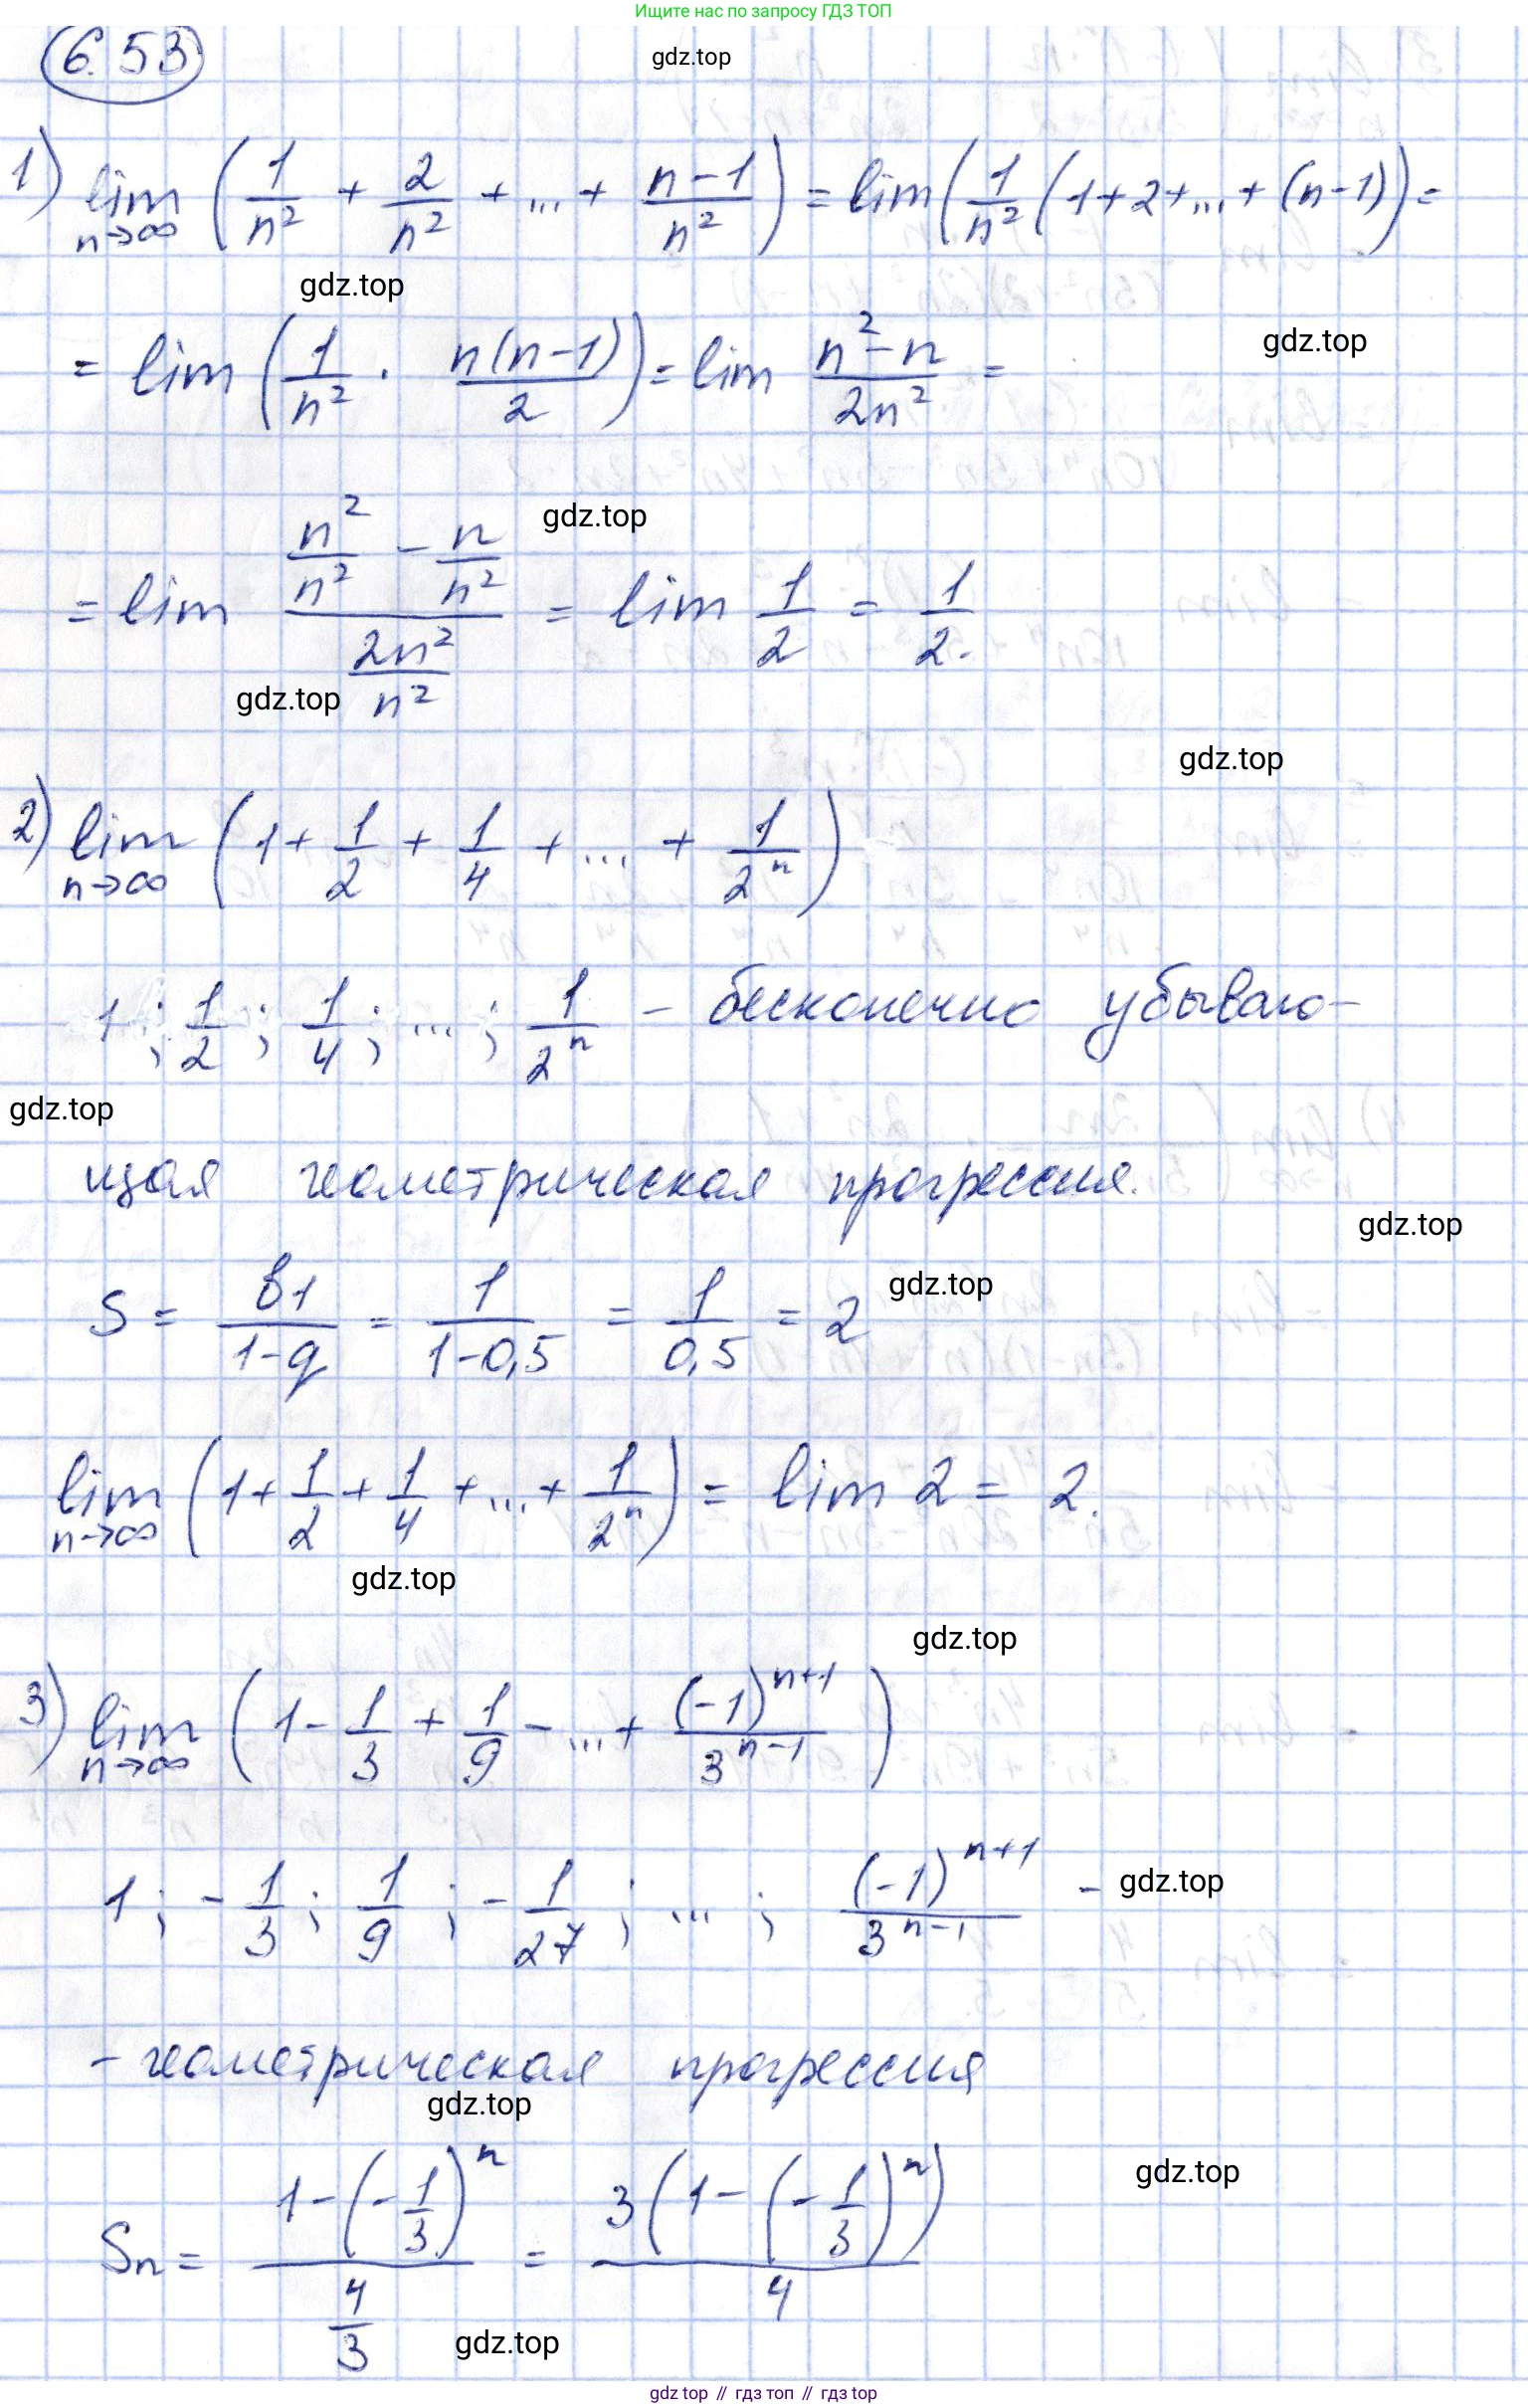 Ищите нас по запросу ГДЗ ТОП
6.53
gdz.top
1) lim n→∞ (1/n² + 2/n² + ... + (n-1)/n²) = lim (1/n² (1+2+...+(n-1)) =
gdz.top
= lim (1/n² · n(n-1)/2) = lim (n²-n)/(2n²) =
gdz.top
gdz.top
= lim (n²/n² - n/n²)/(2n²/n²) = lim 1/2 = 1/2.
gdz.top
gdz.top
2) lim n→∞ (1 + 1/2 + 1/4 + ... + 1/2ⁿ)
1; 1/2; 1/4; ...; 1/2ⁿ - бесконечно убываю-
gdz.top
щая геометрическая прогрессия.
gdz.top
S = b1/(1-q) = 1/(1-0,5) = 1/0,5 = 2
gdz.top
lim n→∞ (1 + 1/2 + 1/4 + ... + 1/2ⁿ) = lim 2 = 2.
gdz.top
gdz.top
3) lim n→∞ (1 - 1/3 + 1/9 - ... + (-1)ⁿ⁺¹/3ⁿ⁻¹)
1; -1/3; 1/9; -1/27; ...; (-1)ⁿ⁺¹/3ⁿ⁻¹ -
gdz.top
- геометрическая прогрессия
gdz.top
gdz.top
Sn = (1-(-1/3)ⁿ)/(4/3) = 3(1-(-1/3)ⁿ)/4
gdz.top
gdz top // гдз топ // gdz top